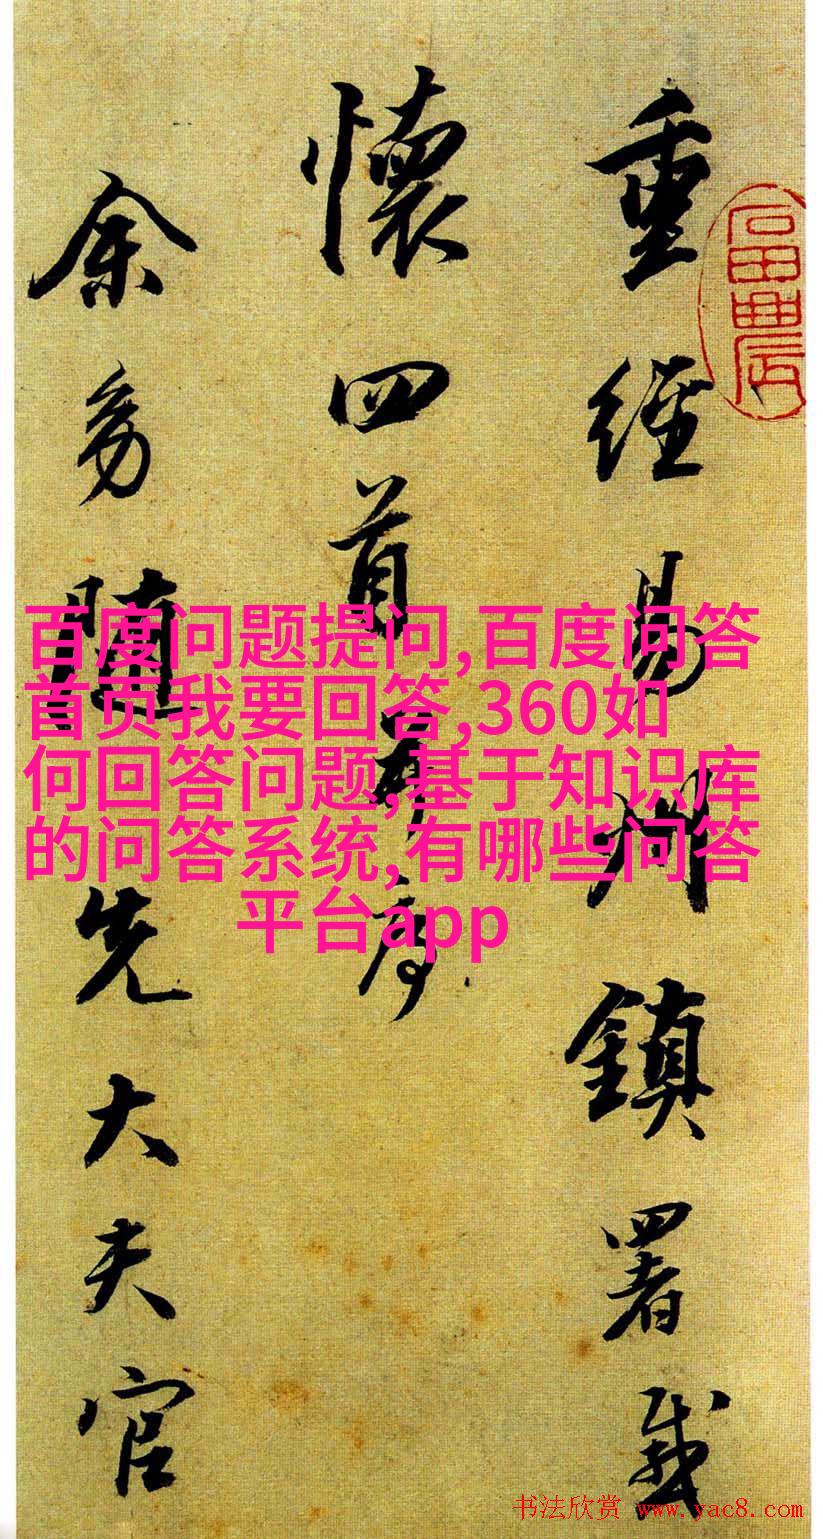 重經易州鎮署感
懷四首并序
余幼隨先大夫官
百度问题提问,百度问答
首页我要回答,360如
何回答问题,基于知识库
的问答系统,有哪些问答
平台app
书法欣赏 www.yac8.com